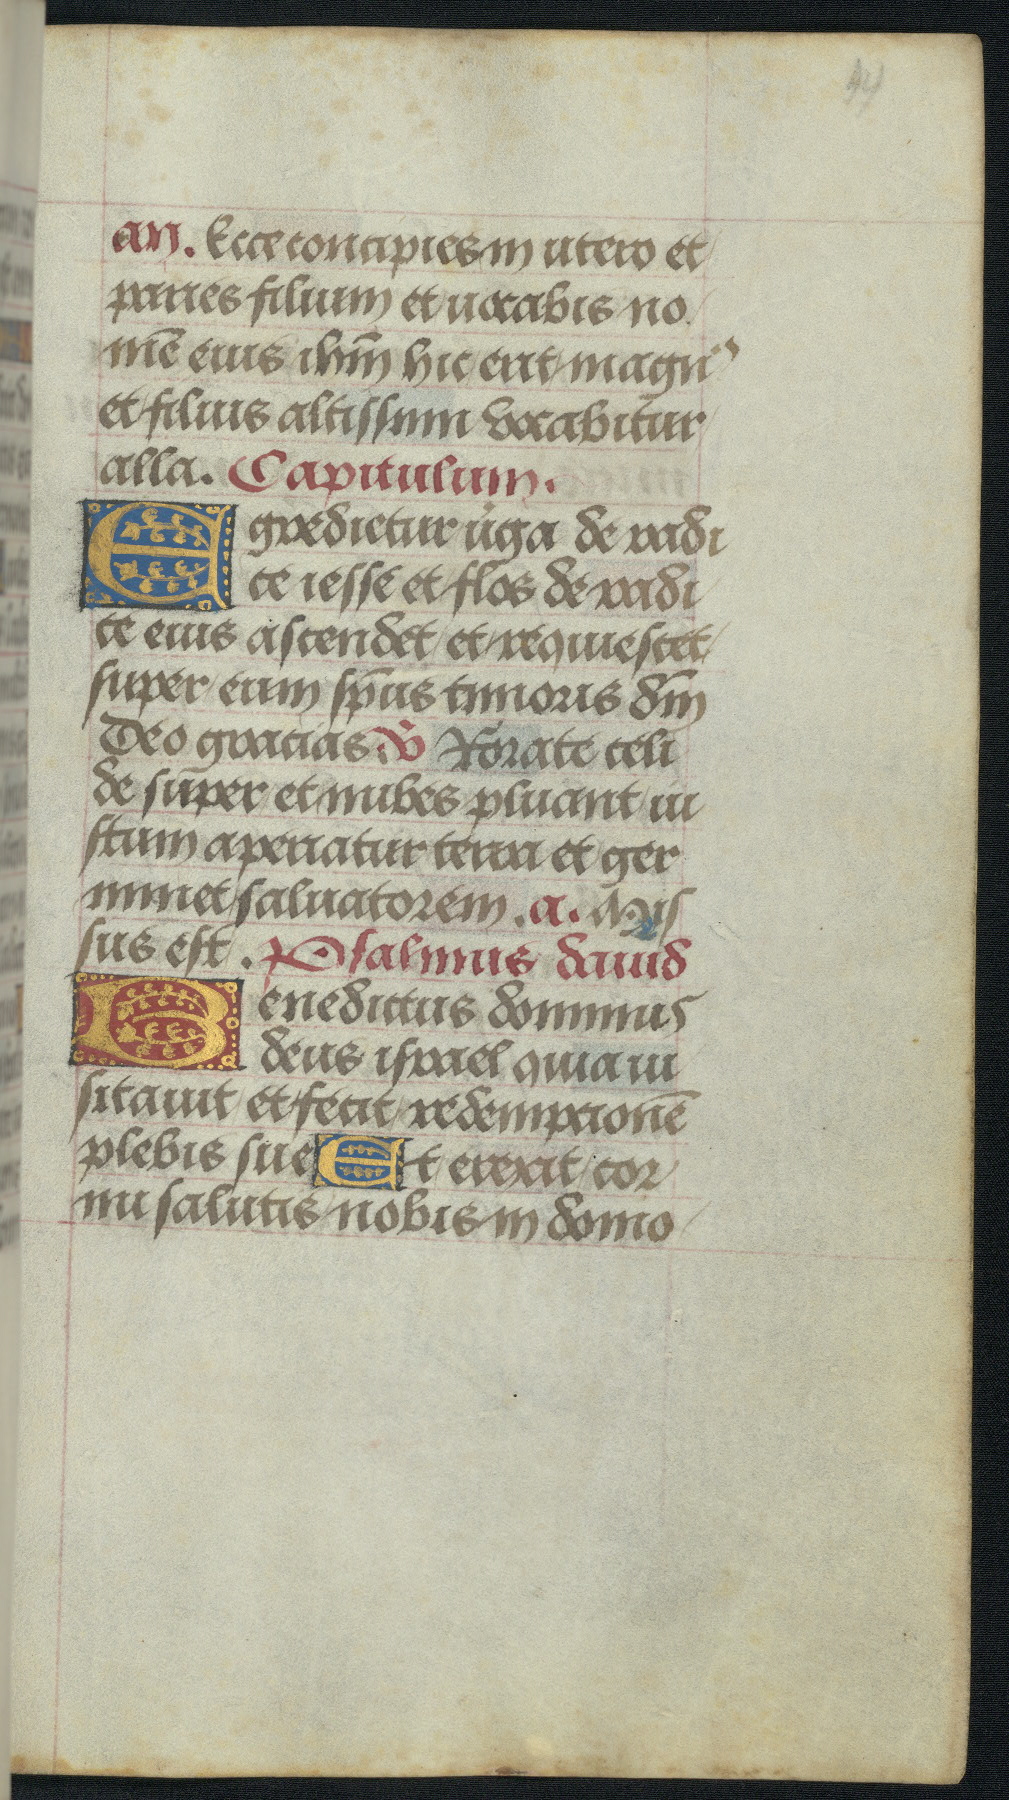 an. Ecce concipies in utero et
paries filium et uocabis no
mē eius ihm̄ hic erit magnꝰ
et filius altissimi vocabitur
alla. Capitulum.
Egredietur uirga de radi
ce iesse et flos de radi
ce eius ascendet et requiescet
super eum sp̄us timoris dm̄
Deo gracias. V̄ Rorate celi
de super et nubes pluant iu
stum aperiatur terra et ger
minet saluatorem. a. Mis
sus est. Psalmus dauid
Benedictus dominus
deus israel quia ui
sitauit et fecit redempcionē
plebis sue Et erexit cor
nu salutis nobis in domo